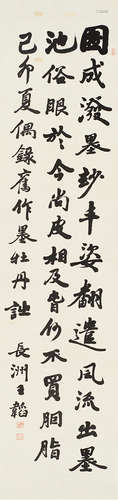 圖成潑墨妙丰姿翻遣風流出墨
池俗眼於今尚皮相及時何不買胭脂
己卯夏偶錄舊作墨牡丹詩
長洲王韜